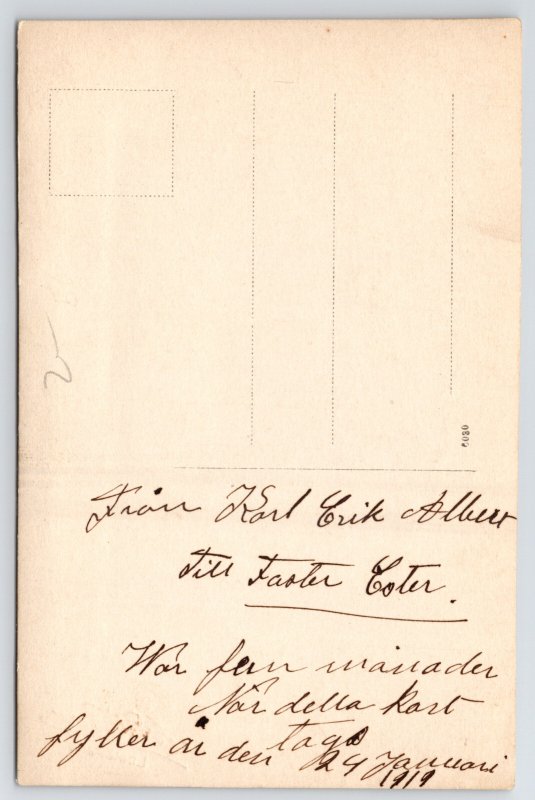 6030
Från Karl Erik Albert
Till Faster Ester.
War fem månader
När detta kort
togs
fyller år den 24 Januari
1919